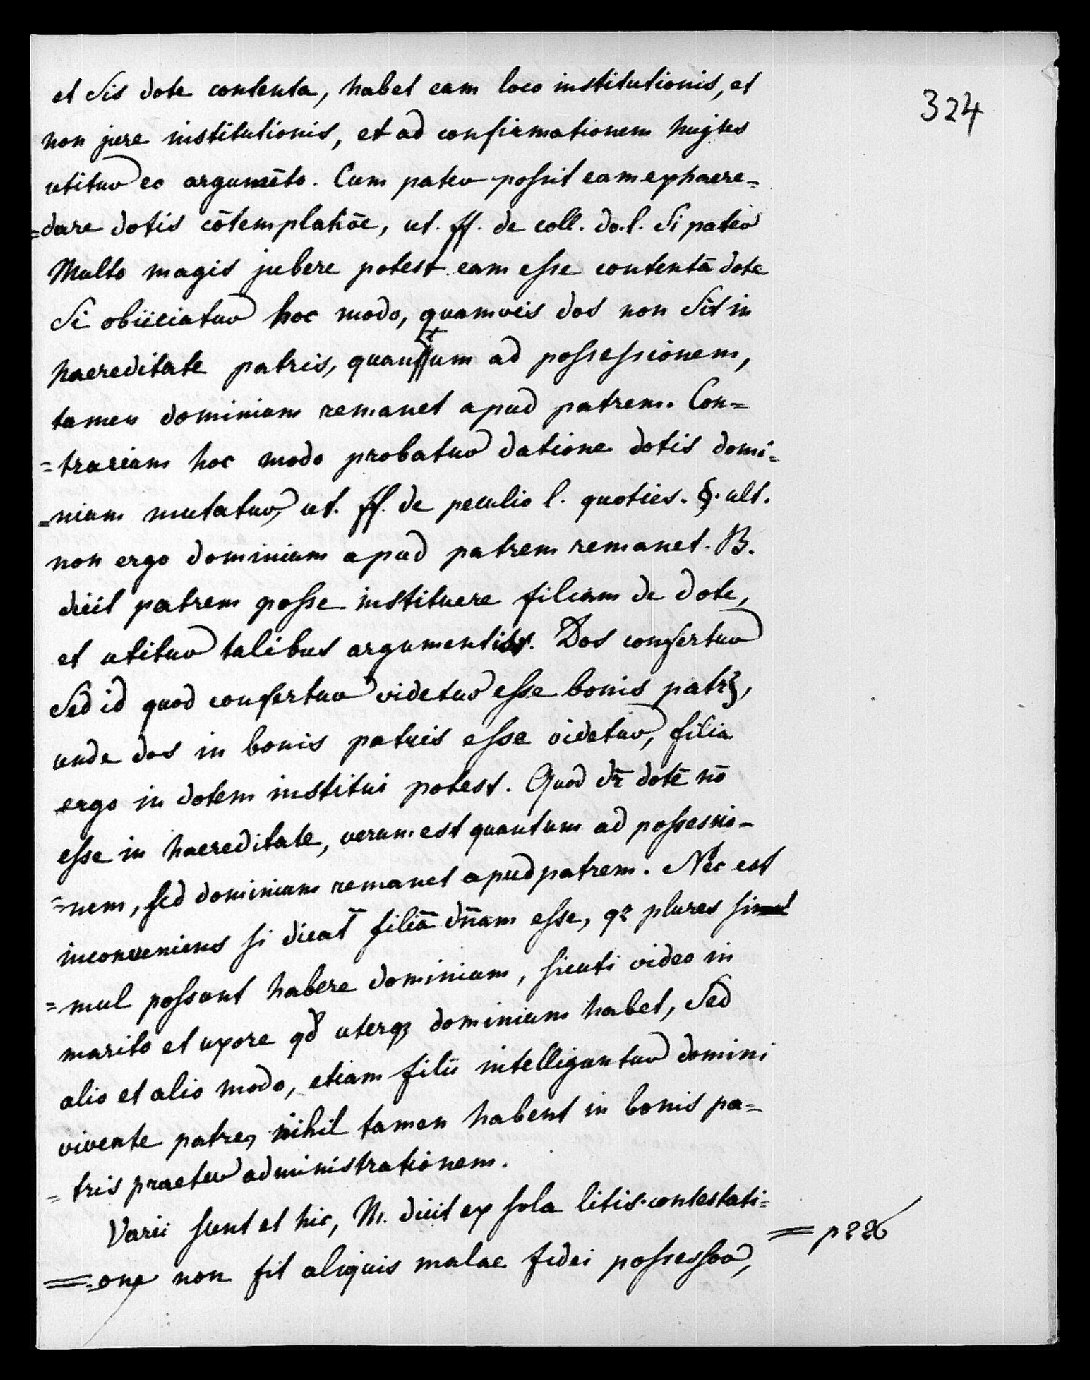 324
et sis dote contenta, habet eam loco institutionis, et
non jure institutionis, et ad confirmationem hujus
utitur eo argumēto. Cum pater possit eam exhaere=
=dare dotis cōtemplatiōe, ut. ff. de coll. do. l. Si pater
Multo magis jubere potest eam esse contentā dote
Si obiiciatur hoc modo, quamvis dos non sit in
haereditate patris, quantum ad possessionem,
tamen dominium remanet apud patrem. Con=
=trarium hoc modo probatur datione dotis domi=
=nium mutatur, ut. ff. de peculio l. quoties. §. ult.
non ergo dominium apud patrem remanet. B.
dicit patrem posse instituere filiam de dote,
et utitur talibus argumentis. Dos confertur
Sed id quod confertur videtur esse bonis patrȝ,
unde dos in bonis patris esse videtur, filia
ergo in dotem institui potest. Quod dr̄ dotē nō
esse in haereditate, verum est quantum ad possessio=
=nem, sed dominium remanet apud patrem. Nec est
inconveniens si dicat̄ filiā dn̄am esse, qȝ plures simul
=mul possunt habere dominium, sicuti video in
marito et uxore qđ uterqȝ dominium habet, Sed
alio et alio modo, etiam filii intelliguntur domini
vivente patre, nihil tamen habent in bonis pa=
=tris praeter administrationem.
Varii sunt et hic, M. dicit ex sola litis contestati=
=one non fit aliquis malae fidei possessor,
= p 226